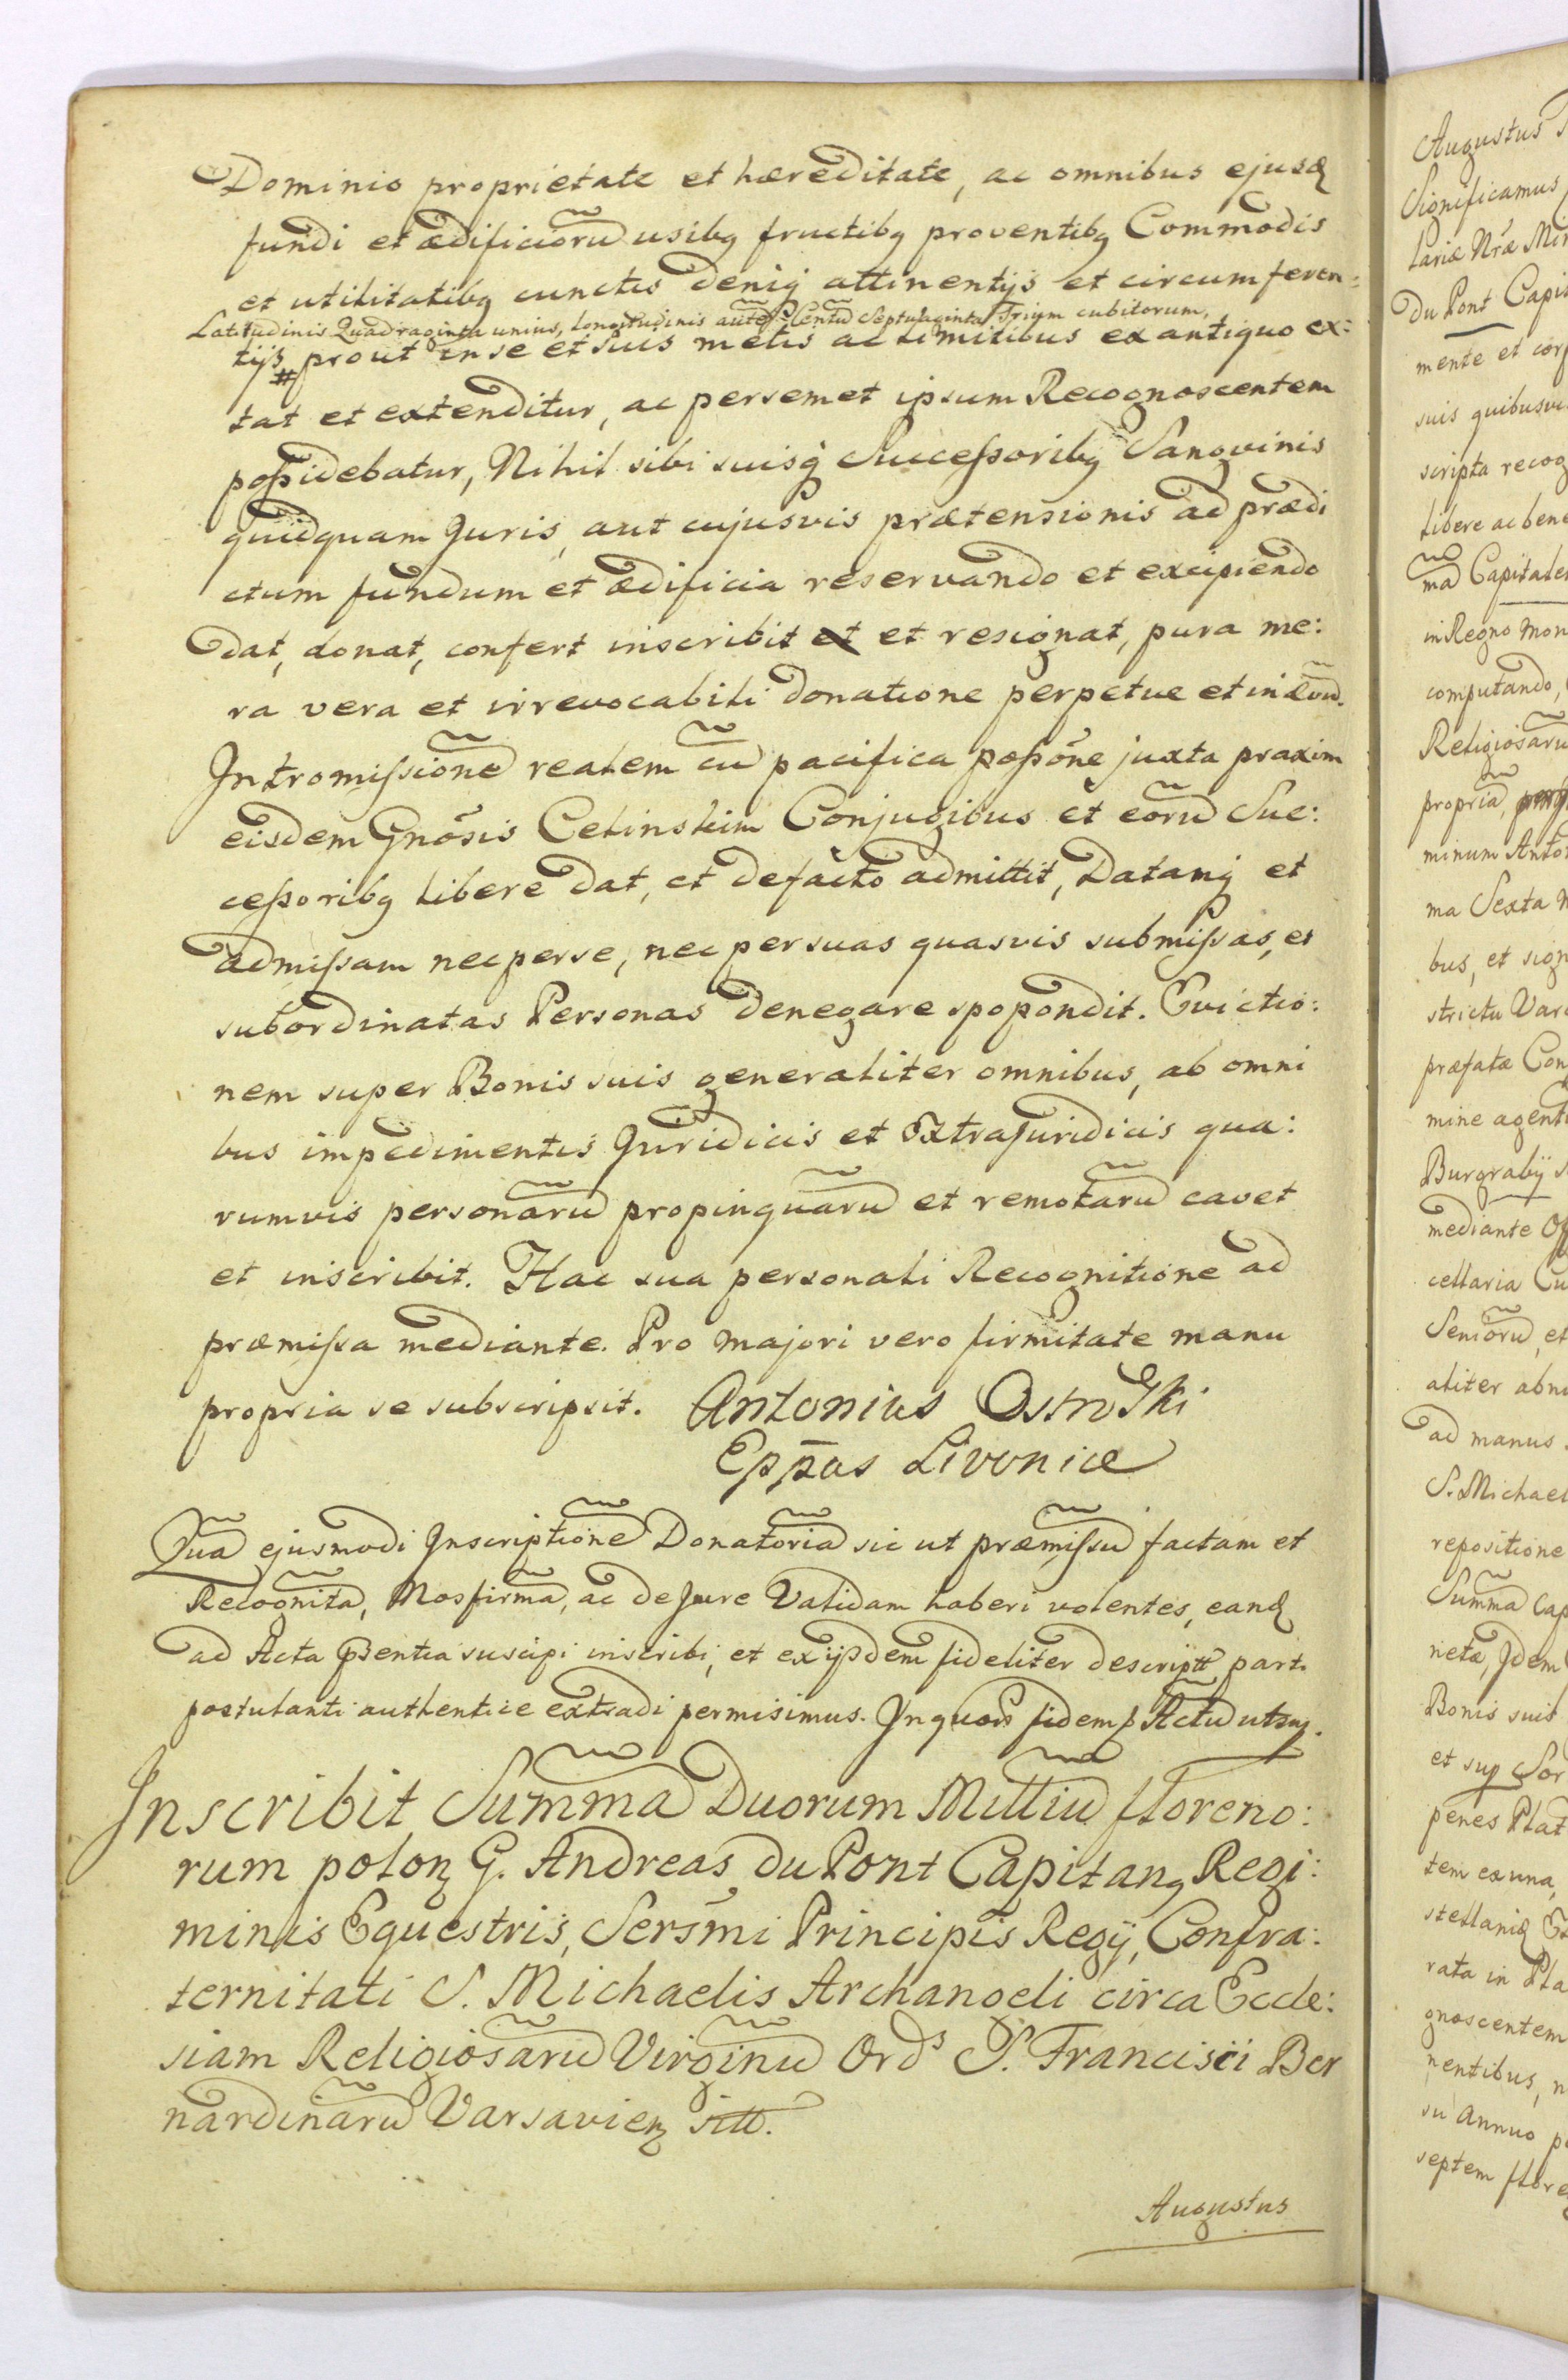 Dominio proprietate et hæreditate, ac omnibus ejusd
fundi et ædificiorũ usibq fructibq proventibq Commodis
et utilitatibq cunctis deniq attinentijs et circumferen:
Latitudinis Quadraginta unius, Longitudinis autẽ Centũ Septuaginta Trium cubitorum,
tijs # prout in se et suis metis ac limitibus ex antiquo ex:
tat et extenditur, ac per semet ipsum Recognoscentem
possidebatur, Nihil sibi suisq Successoribq Sangvinis
quidquam Juris, aut cujusvis prætensionis ad prædi
ctum fundum et ædificia reservando et excipiendo
dat, donat, confert inscribit et et resignat, pura me:
ra vera et irrevocabili donatione perpetue et in ævũ.
Intromissionẽ realem cũ pacifica possõne juxta praxim
eisdem Gnõsis Celinskim Conjugibus et eorũ Suc:
cessoribq libere dat, et defacto admittit, Datamq et
admissam nec per se, nec per suas quasvis submissas, et
subordinatas Personas denegare spopondit. Evictio:
nem super Bonis suis generaliter omnibus, ab omni
bus impedimentis Juridicis et Extrajuridicis qua:
rumvis personarũ propinquarũ et remotarũ cavet
et inscribit. Hac sua personali Recognitione ad
præmissa mediante. Pro majori vero firmitate manu
propria se subscripsit. Antonius Ostroski
Epp̄us Livoniæ
Quã ejusmodi Inscriptionẽ Donatoriã sic ut præmissũ factam et
Recognitã, Nos firmã, ac de Jure Validam haberi volentes, eand
ad Acta pñtia suscipi inscribi, et ex ijsdem fideliter descriptt parti
postulanti authentice extradi permisimus. In quor fidem p Actũ utsq.
Inscribit Summã Duorum Milliũ floreno:
rum polon G. Andreas du Pont Capitanq Regi:
minis Equestris, Sersm̃i Principis Regij, Confra:
ternitati S. Michaelis Archangeli circa Eccle:
siam Religiosarũ Virginũ Ords S. Francisci Ber
nardinarũ Varsavien sitt.
Augustus
Augustus
Significamus
lariæ Nræ
Du Pont Capi
mente et cor
suis quibusvi
scripta recog
libere ac bene
mã Capitale
in Regno mon
computando,
Religiosarũ
propriã,
minum Anto
ma Sexta
bus, et sign
strictu Var
præfatæ Con
mine agent
Burgrabij
mediante Of
cellaria Cu
Seniorũ, et
aliter abn
ad manus
S. Michael
repositione
Summã Cap
netæ, Idem
Bonis suis
et sup Sor
penes Plat
tem ex una,
stellaniq
rata in Pla
gnoscentem
nentibus, n
su annuo p
septem flore